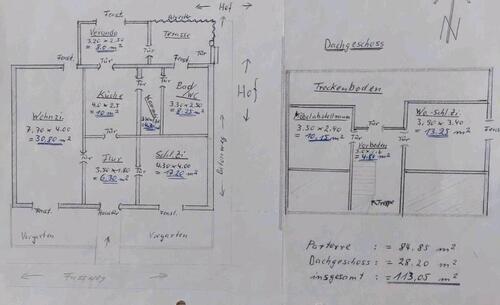 Fenst.
← Hof →
Veranda
3.20 x 2.50
= 8.0 m²
Terrasse
Tür
Tür
Fenst.
Tür
Tür
Fenst.
Tür
Wohnzi
7.70 x 4.00
= 30,80 m²
Küche
4.0 x 2.5
= 10 m²
Bad
/WC
3.30 x 2.50
= 8.25 m²
← Hof →
Tür
Tür
Flur
3.50 x 1.80
= 6.30 m²
Schlzi
4.30 x 4.00
= 17.20 m²
Fenst.
Haustür
Fenst.
Vorgarten
Vorgarten
← Fussweg →
N
Dachgeschoss
Trockenboden
Möbelabstellraum
3.50 x 2.90
= 10,15 m²
Tür
Tür
Wo-Schlzi
3,90 x 3.40
= 13.25 m²
Vorboden
= 4.80 m²
Fenst
Treppe
Parterre : = 84.85 m²
Dachgeschoss : = 28.20 m²
insgesamt : = 113,05 m²